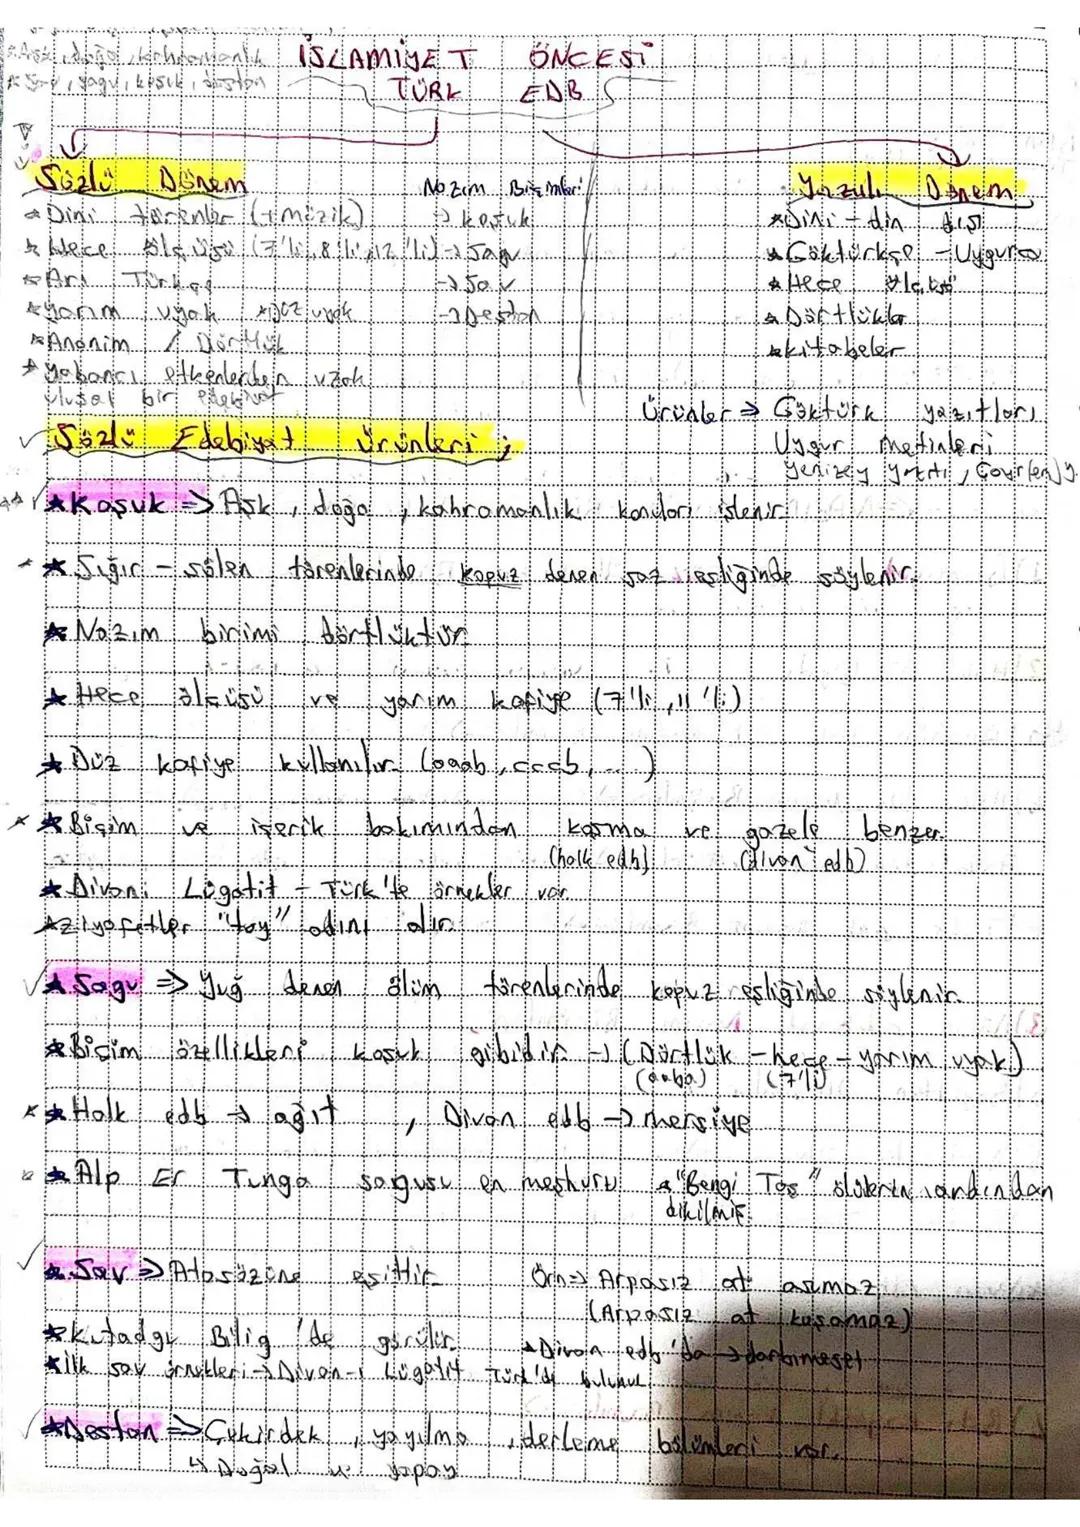 *Aşk, doğa, kahramanlık
İSLAMİYET ÖNCESİ
TÜRK EDB
Sözlü Dönem
Nazım Biçimleri
Yazılı Dönem
*Dini törenler (+müzik)
→ koşuk
*Dini - din dışı
*Hece ölçüsü (7'li, 8'li, 12'li) → Sagu
*Göktürkçe - Uygurca
*Arı Türkçe
→ Sav
*Hece ölçüsü
*yarım uyak *düz uyak
→ Destan
*Dörtlükler
*Anonim / Dörtlük
*kitabeler
*yabancı etkenlerden uzak
ulusal bir edebiyat
Ürünler ⇒ Göktürk yazıtları
Uygur metinleri
Yenizey yazıtı,
Sözlü Edebiyat Ürünleri ;
*Koşuk ⇒ Aşk, doğa, kahramanlık konuları işlenir.
*Sığır - şölen törenlerinde kopuz denen saz eşliğinde söylenir.
*Nazım birimi dörtlüktür
*Hece ölçüsü ve yarım kafiye (7'li, 11'li)
*Düz kafiye kullanılır (aaab, cccb, ...)
*Biçim ve içerik bakımından koşma ve gazele benzer.
(halk edb) (divan edb)
*Divani Lügatit - Türk'te örnekler var
*ziyafetler "toy" adını alır
*Sagu ⇒ Yuğ denen ölüm törenlerinde kopuz eşliğinde söylenir.
*Biçim özellikleri koşuk gibidir → (Dörtlük - hece - yarım uyak)
(aaba) (7'li)
*Halk edb → ağıt , Divan edb → mersiye
*Alp Er Tunga sagusu en meşhuru *"Bengi Taş" ölülerin ardından
dikilmiş.
*Sav ⇒ Atasözüne eşittir. Örn⇒ Arpasız at aşumaz
(Arpasız at koşamaz)
*Kutadgu Bilig'de görülür.
*Divan edb'da → darbımesel
*ilk sav örnekleri → Divan-ı Lügatit Türk'de bulunur.
*Destan ⇒ Çekirdek, yayılma, derleme bölümleri var.
↳ Doğal ve yapay